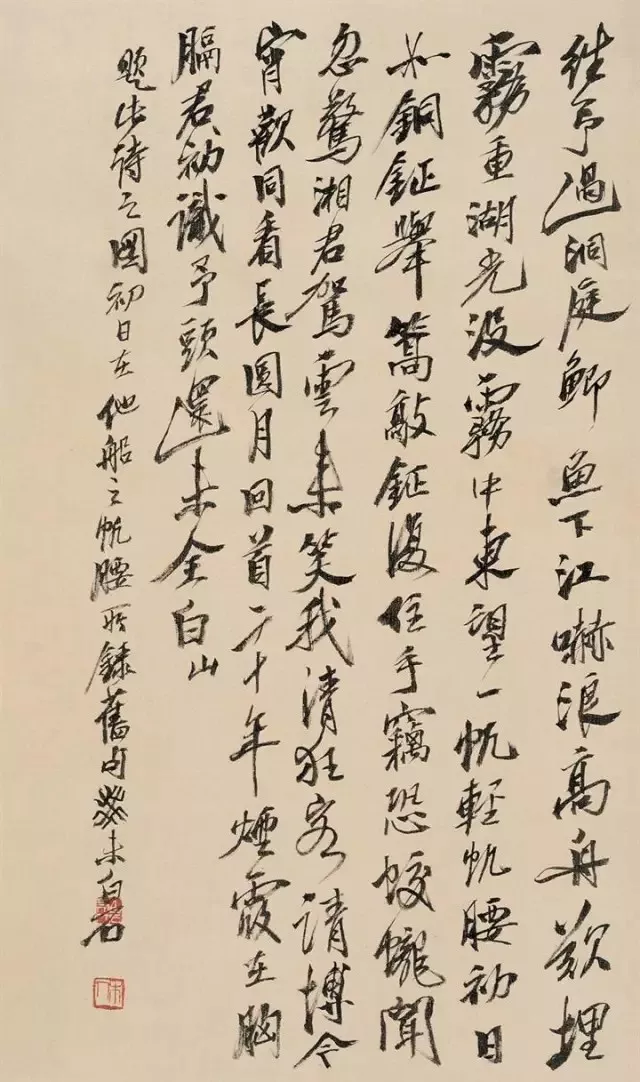 往予過洞庭鯽魚下江嚇浪高舟欲埋
霧重湖光沒霧中東望一帆輕帆腰初日
如銅鉦舉篙敲鉦復住手竊恐蛟龍聞
忽驚湘君駕雲來笑我清狂客請博今
宵歡同看長圓月回首二十年煙霞在胸
膈君初識予頭還未全白山
題此詩之圖初日在他船之帆腰所錄舊句癸未白石